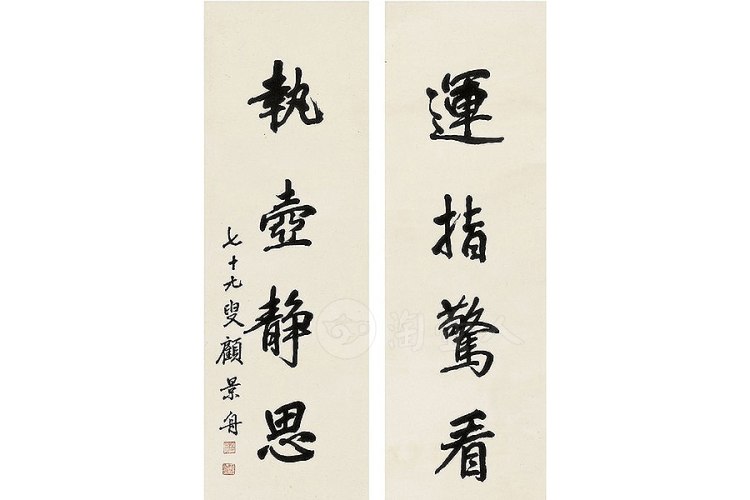 運指驚看
執壺静思
七十九叟顧景舟